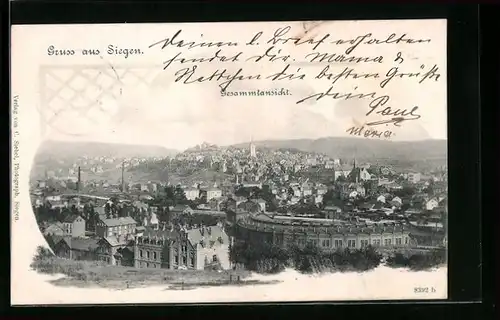 Gruss aus Siegen.
Deinen l. Brief erhalten
sendet dir. Mama &
Nettchen die besten Grüße
Gesammtansicht.
dein
Paul
Maria.
Verlag von C. Siebel, Photograph, Siegen.
9392 b